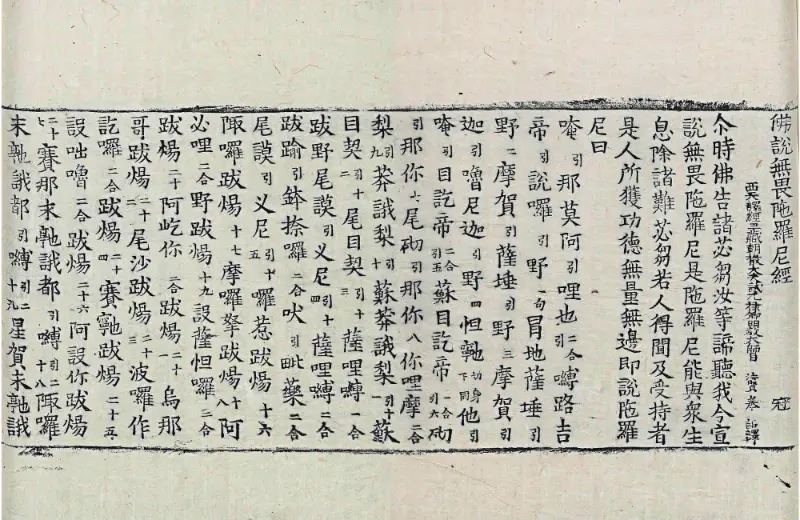 佛說無畏陁羅尼經 冠
西天譯經三藏朝散大夫試光祿卿明教大師 法賢 奉 詔譯
尒時佛告諸苾芻汝等諦聽我今宣
說無畏陁羅尼是陁羅尼能與衆生
息除諸難苾芻若人得聞及受持者
是人所獲功德無量無邊即說陁羅
尼曰
唵引那莫阿引哩也二合嚩路吉
帝引說囉引野一句冐地薩埵引
野二摩賀引薩埵引野三摩賀引
迦引嚕尼迦引野四怛𭉨切身下同他引
唵引目訖帝二合引五蘇目訖帝二合引六砌
引那你七尾砌引那你八你哩摩二合
梨引九莽誐梨十蘇莽誐梨引十一蘇
目契二十尾目契引十三薩哩嚩一合
跋野尾謨引义尼引十四薩哩嚩二合
跋踰引鉢捺囉二合吠引毗藥二合
尾謨引义尼引十五囉惹跋煬十六
陬囉跋煬十七摩囉拏跋煬十八阿
必哩二合野跋煬十九設薩怛囉二合
跋煬二十阿屹你二合跋煬二十一烏那
哥跋煬二十二尾沙跋煬二十三波囉作
訖囉二合跋煬二十四賽𭉨跋煬二十五
設咄嚕二合跋煬二十六阿設你跋煬
二十七賽那末𭉨誐都引嚩引二十八陬囉
末𭉨誐都引嚩引二十九星賀末𭉨誐